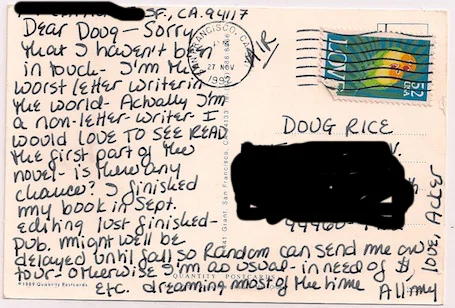 SF, CA. 94117
Dear Doug - Sorry
that I haven't been
in touch - I'm the
worst letter writer in
the world - Actually I'm
a non-letter writer. I
would LOVE TO SEE READ
the first part of the
novel - is there any
chance? I finished
my book in Sept.
editing just finished -
pub. might well be
delayed until fall so Random can send me on
tour - otherwise I'm as usual - in need of $,
etc. dreaming most of the time All my
love, Acker
SAN FRANCISCO, CA
27 NOV
1992
AIR
LOVE
52
USA
DOUG RICE
Grant, San Francisco, CA 94133
QUANTITY POSTCARDS
©1989 Quantity Postcards